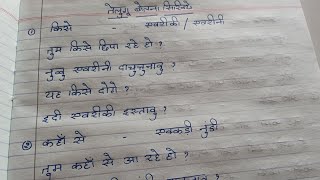 तेलुगु बोलना सिखिये
① किसे - एवरीकी / एवरीनी
तुम किसे छिपा रहे हो?
नुव्वु एवरीनी दाचुचुनावु?
यह किसे दोगे?
इदी एवरीकी इस्तावु?
② कहाँ से - एक्कडी नुंडी
तुम कहाँ से आ रहे हो?